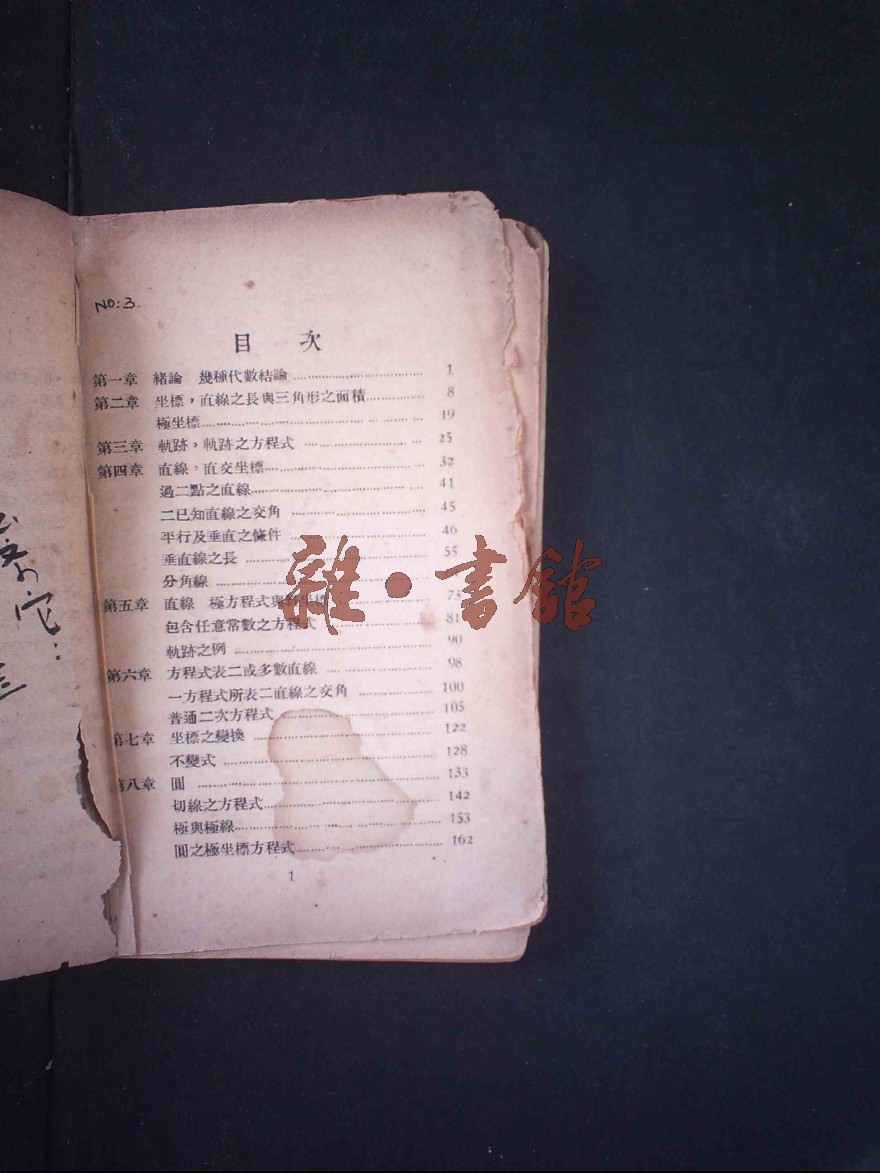 NO:3
目 次
第一章 緒論 幾種代數結論 ………………………… 1
第二章 坐標，直線之長與三角形之面積………… 8
極坐標………………………………………… 19
第三章 軌跡，軌跡之方程式 ……………………… 25
第四章 直線，直交坐標……………………………… 32
過二點之直線………………………………… 41
二已知直線之交角 ………………………… 45
平行及垂直之條件 ………………………… 46
垂直線之長 ………………………………… 55
分角線 ………………………………………
第五章 直線 極方程式與 73
包含任意常數之方程式 …………………… 81
軌跡之例 …………………………………… 90
第六章 方程式表二或多數直線 …………………… 98
一方程式所表二直線之交角 ……………… 100
普通二次方程式 …………………………… 105
第七章 坐標之變換 ………………………………… 122
不變式 ……………………………………… 128
第八章 圓 …………………………………………… 133
切線之方程式………………………………… 142
極與極線……………………………………… 153
圓之極坐標方程式…………………………… 162
1
它：
三
雜·書館